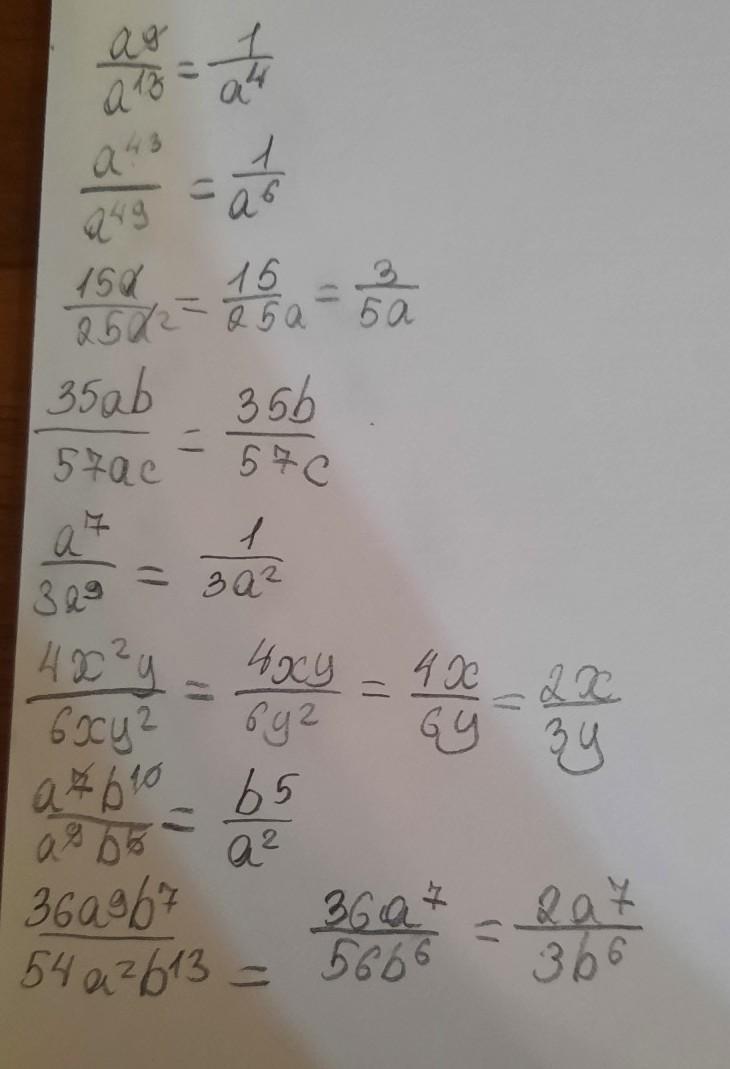 a⁹/a¹³ = 1/a⁴
a⁴³/a⁴⁹ = 1/a⁶
15a/25a² = 15/25a = 3/5a
35ab/57ac = 35b/57c
a⁷/3a⁹ = 1/3a²
4x²y/6xy² = 4xy/6y² = 4x/6y = 2x/3y
a⁷b¹⁰/a⁹b⁵ = b⁵/a²
36a⁹b⁷/54a²b¹³ = 36a⁷/56b⁶ = 2a⁷/3b⁶